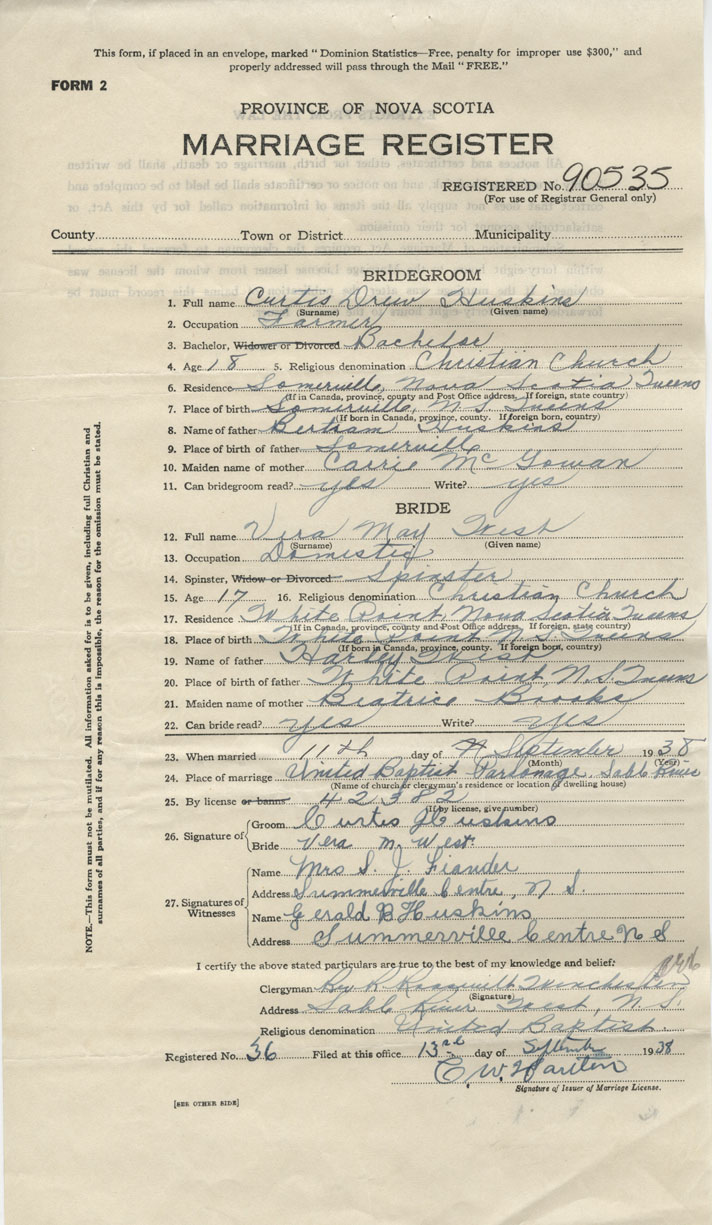 This form, if placed in an envelope, marked " Dominion Statistics—Free, penalty for improper use $300," and
properly addressed will pass through the Mail " FREE."
FORM 2
PROVINCE OF NOVA SCOTIA
MARRIAGE REGISTER
REGISTERED No. 90535
(For use of Registrar General only)
County Town or District Municipality
BRIDEGROOM
1. Full name Curtis Drew Huskins
(Surname) (Given name)
2. Occupation Farmer
3. Bachelor, Widower or Divorced Bachelor
4. Age 18 5. Religious denomination Christian Church
6. Residence Somerville, Nova Scotia Queens
(If in Canada, province, county and Post Office address. If foreign, state country)
7. Place of birth Somerville, N.S. Queens
(If born in Canada, province, county. If foreign born, country)
8. Name of father Bertram Huskins
9. Place of birth of father Somerville
10. Maiden name of mother Carrie McGowan
11. Can bridegroom read? yes Write? yes
BRIDE
12. Full name Vera May West
(Surname) (Given name)
13. Occupation Domestic
14. Spinster, Widow or Divorced Spinster
15. Age 17 16. Religious denomination Christian Church
17. Residence White Point Nova Scotia Queens
(If in Canada, province, county and Post Office address. If foreign, state country)
18. Place of birth White Point N.S. Queens
(If born in Canada, province, county. If foreign born, country)
19. Name of father Harley West
20. Place of birth of father White Point N.S. Queens
21. Maiden name of mother Beatrice Brooks
22. Can bride read? yes Write? yes
23. When married 11th day of September 1938
(Month) (Year)
24. Place of marriage United Baptist Parsonage, Sable River
(Name of church or clergyman's residence or location of dwelling house)
25. By license or banns 42382
(If by license, give number)
26. Signature of Groom Curtis Huskins
Bride Vera M. West.
27. Signatures of Witnesses Name Mrs S. J. Fiander
Address Summerville Centre, N S.
Name Gerald B Huskins
Address Summerville Centre N S
I certify the above stated particulars are true to the best of my knowledge and belief:
Clergyman Rev R Roosevelt Winchester
(Signature)
Address Sable River West, N.S.
Religious denomination United Baptist
Registered No. 36 Filed at this office 13rd day of September 1938
Signature of Issuer of Marriage License.
[SEE OTHER SIDE]
NOTE.—This form must not be mutilated. All information asked for is to be given, including full Christian and
surnames of all parties, and if for any reason this is impossible, the reason for the omission must be stated.